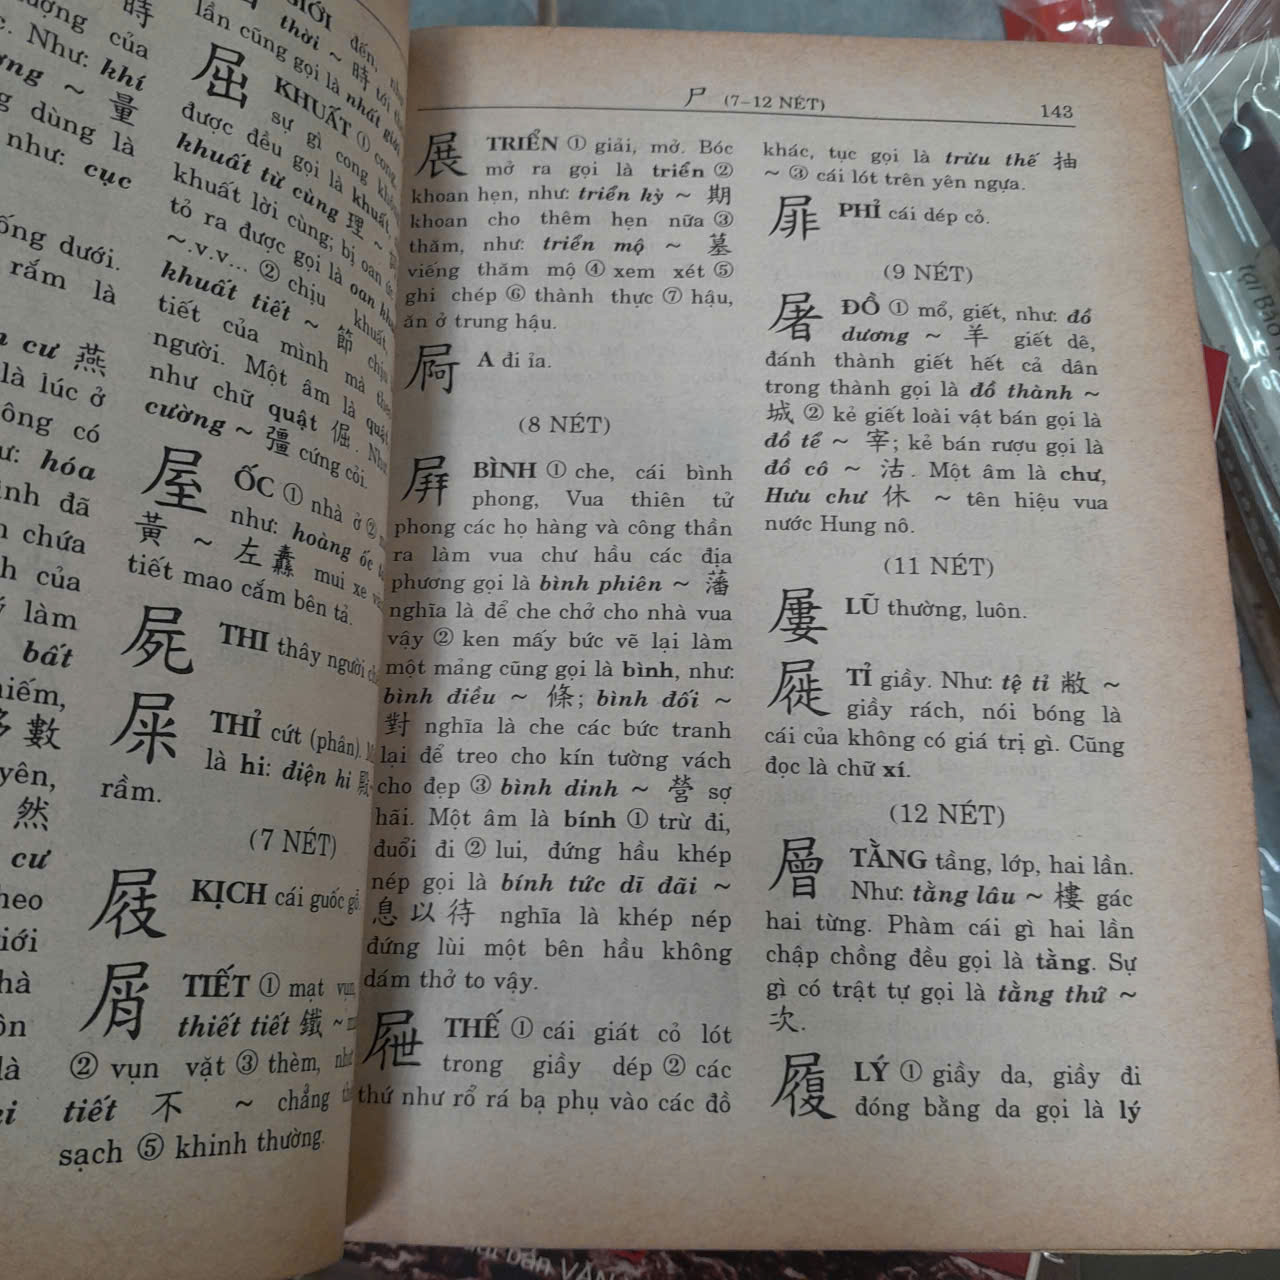 時
lượng của
Như: khí
量
dùng là
như: cục
ống dưới.
rắm là
cư 燕
là lúc ở
ông có
hóa
đã
chứa
của
làm
bất
數
然
cư
GIỚI
lần cũng gọi là nhất giới
thời ~ 時 tới
屈 KHUẤT ① cong,
sự gì cong không
được đều gọi là khuất,
khuất từ cùng 理 ~
khuất lời cùng; bị oan
tỏ ra được gọi là oan
~.v.v... ② chịu khuất,
khuất tiết ~ 節 chịu
tiết của mình mà theo
người. Một âm là quật
như chữ quật 倔. Như
cường ~ 彊 cứng cỏi.
屋 ỐC ① nhà ở ②
như: hoàng ốc
黃 ~ 左纛 mui xe
tiết mao cắm bên tả.
屍 THI thây người
屎 THỈ cứt (phân).
là hi: điện hi 殿
rầm.
(7 NÉT)
屐 KỊCH cái guốc gỗ.
屑 TIẾT ① mạt vụn,
thiết tiết 鐵 ~
② vụn vặt ③ thèm, như
tiết 不 ~ chẳng
sạch ⑤ khinh thường.
尸 (7–12 NÉT) 143
展 TRIỂN ① giải, mở. Bóc
mở ra gọi là triển ②
khoan hẹn, như: triển kỳ ~ 期
khoan cho thêm hẹn nữa ③
thăm, như: triển mộ ~ 墓
viếng thăm mộ ④ xem xét ⑤
ghi chép ⑥ thành thực ⑦ hậu,
ăn ở trung hậu.
屙 A đi ỉa.
(8 NÉT)
屏 BÌNH ① che, cái bình
phong, Vua thiên tử
phong các họ hàng và công thần
ra làm vua chư hầu các địa
phương gọi là bình phiên ~ 藩
nghĩa là để che chở cho nhà vua
vậy ② ken mấy bức vẽ lại làm
một mảng cũng gọi là bình, như:
bình điều ~ 條; bình đối ~
對 nghĩa là che các bức tranh
lại để treo cho kín tường vách
cho đẹp ③ bình dinh ~ 營 sợ
hãi. Một âm là bính ① trừ đi,
đuổi đi ② lui, đứng hầu khép
nép gọi là bính tức dĩ đãi ~
息以待 nghĩa là khép nép
đứng lùi một bên hầu không
dám thở to vậy.
屜 THẾ ① cái giát cỏ lót
trong giầy dép ② các
thứ như rổ rá bạ phụ vào các đồ
khác, tục gọi là trừu thế 抽
~ ③ cái lót trên yên ngựa.
屝 PHỈ cái dép cỏ.
(9 NÉT)
屠 ĐỒ ① mổ, giết, như: đồ
dương ~ 羊 giết dê,
đánh thành giết hết cả dân
trong thành gọi là đồ thành ~
城 ② kẻ giết loài vật bán gọi là
đồ tể ~ 宰; kẻ bán rượu gọi là
đồ cô ~ 沽. Một âm là chư,
Hưu chư 休 ~ tên hiệu vua
nước Hung nô.
(11 NÉT)
屢 LŨ thường, luôn.
屣 TỈ giầy. Như: tệ tỉ 敝 ~
giầy rách, nói bóng là
cái của không có giá trị gì. Cũng
đọc là chữ xí.
(12 NÉT)
層 TẰNG tầng, lớp, hai lần.
Như: tằng lâu ~ 樓 gác
hai từng. Phàm cái gì hai lần
chập chồng đều gọi là tằng. Sự
gì có trật tự gọi là tằng thứ ~
次.
履 LÝ ① giầy da, giầy đi
đóng bằng da gọi là lý